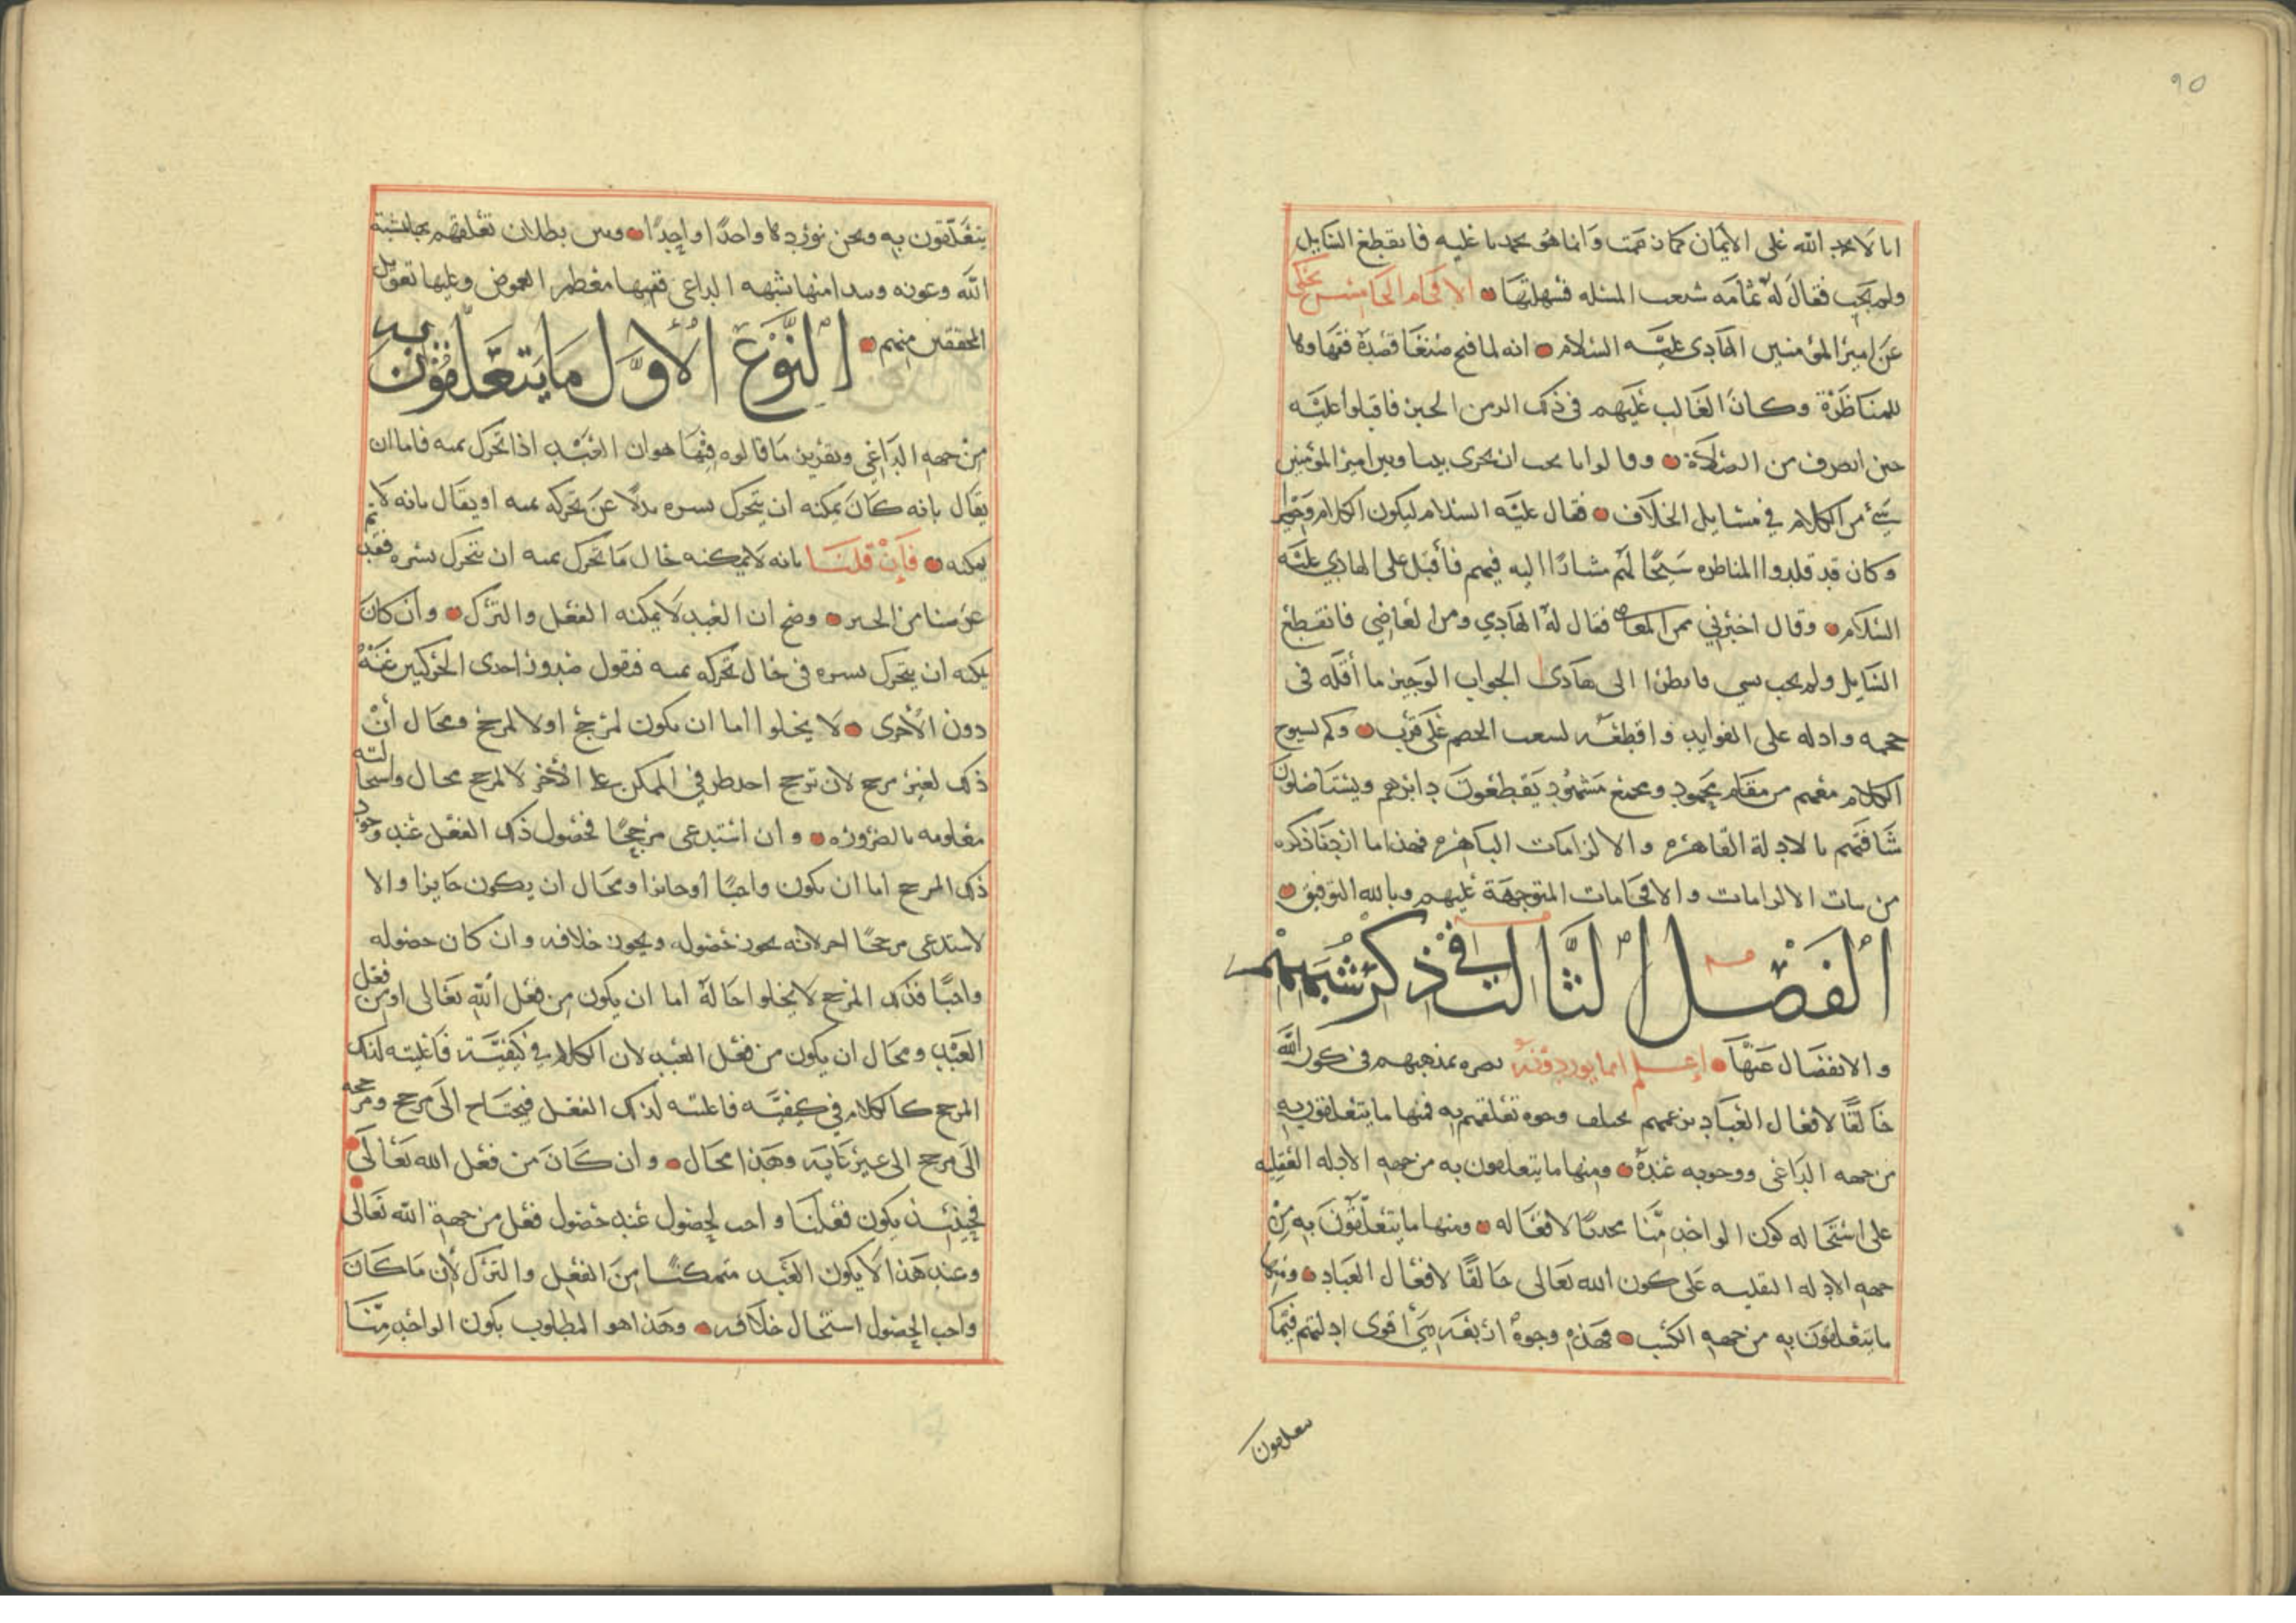 ٩٥
انا لا نحمد الله على الأيمان كما زعمت وانما هو يحمدنا عليه فانقطع السائل
ولم يجب فقال له ثمامه شنعت المسئله فسهلتها الافحام الخامس يحكى
عن امير المؤمنين الهادي عليه السلام انه لما فتح صنعا قصده فقهاوها
للمناظرة وكان الغالب عليهم في ذلك الزمن الجبر فاقبلوا عليه
حين انصرف من الصلاة وقالوا انا نحب ان يجرى بيننا وبين امير المؤمنين
شيء من الكلام في مسايل الخلاف فقال عليه السلام ليكون الكلام
وكان قد قلدوا المناظره شيخا لهم مشارا اليه فيهم فأقبل على الهادي عليه
السلام وقال اخبرني ممن المعاصي فقال له الهادي ومن العاصي فانقطع
السايل ولم يجب بشي فانظر الى هذا الجواب الوجيز ما أقله في
حجمه وادله على الفوايد واقطعه لشعب الخصم على قرب وكم لشيوخ
الكلام معهم من مقام محمود ومجمع مشهود يقطعون دابرهم ويستاصلون
شافتهم بالادلة القاهره والالزامات الباهره فهذا ما اردنا ذكره
من بيان الالزامات والافحامات المتوجهة عليهم وبالله التوفيق
الفصل الثالث في ذكر شبههم
والانفصال عنها إعلم ان ما يوردونه نصره لمذهبهم في كون الله
خالقا لافعال العباد بزعمهم مختلف وجوه تعلقهم به فمنها ما يتعلقون به
من جهه الداعي ووجوبه عنده ومنها ما يتعلقون به من جهه الادله العقليه
على استحاله كون الواحد منا محدثا لافعاله ومنها ما يتعلقون به من
جهه الادله النقليه على كون الله تعالى خالقا لافعال العباد ومنها
ما يتعلقون به من جهه الكسب فهذه وجوه اربعه هي اقوى ادلتهم فيما
يتعلقون
يتعلقون به ونحن نوردها واحدا واحدا ونبين بطلان تعلقهم بها بمشية
الله وعونه ونبدا منها بشبهه الداعي ففيها معظم الغموض وعليها تعويل
المحققين منهم النوع الأول ما يتعلقون به
من جهه الداعي وتقرير ما قالوه فيها هو ان العبد اذا تحرك يمنه فاما ان
يقال بانه كان يمكنه ان يتحرك يسره بدلا عن تحركه يمنه او يقال بانه لا
يمكنه فإن قلنا بانه لا يمكنه حال ما تحرك يمنه ان يتحرك يسره فقد تم
غرضنا من الجبر وضح ان العبد لا يمكنه الفعل والترك وأن كان
يمكنه ان يتحرك يسره في حال تحركه يمنه فنقول صدور احدى الحركتين عنه
دون الأخرى لا يخلوا اما ان يكون لمرجح او لا لمرجح ومحال أن
ذلك لغير مرجح لان ترجح احد طرفي الممكن على الأخر لا لمرجح محال واستحالته
معلومه بالضروره وان استدعى مرجحا فحصول ذلك الفعل عند وجود
ذلك المرجح اما ان يكون واجبا او جائزا ومحال ان يكون جايزا والا
لاستدعى مرجحا اخر لانه يجوز حصوله ويجوز خلافه وان كان حصوله
واجبا فذلك المرجح لا يخلوا حاله اما ان يكون من فعل الله تعالى او من فعل
العبد ومحال ان يكون من فعل العبد لان الكلام في كيفية فاعليته لذلك
المرجح كالكلام في كيفيه فاعليته لذلك الفعل فيحتاج الى مرجح ومرجحه
الى مرجح الى غير غايه وهذا محال وان كان من فعل الله تعالى
فحينئذ يكون فعلنا واجب الحصول عند حصول فعل من جهة الله تعالى
وعند هذا لا يكون العبد متمكنا من الفعل والترك لأن ما كان
واجب الحصول استحال خلافه وهذا هو المطلوب بكون الواحد منا